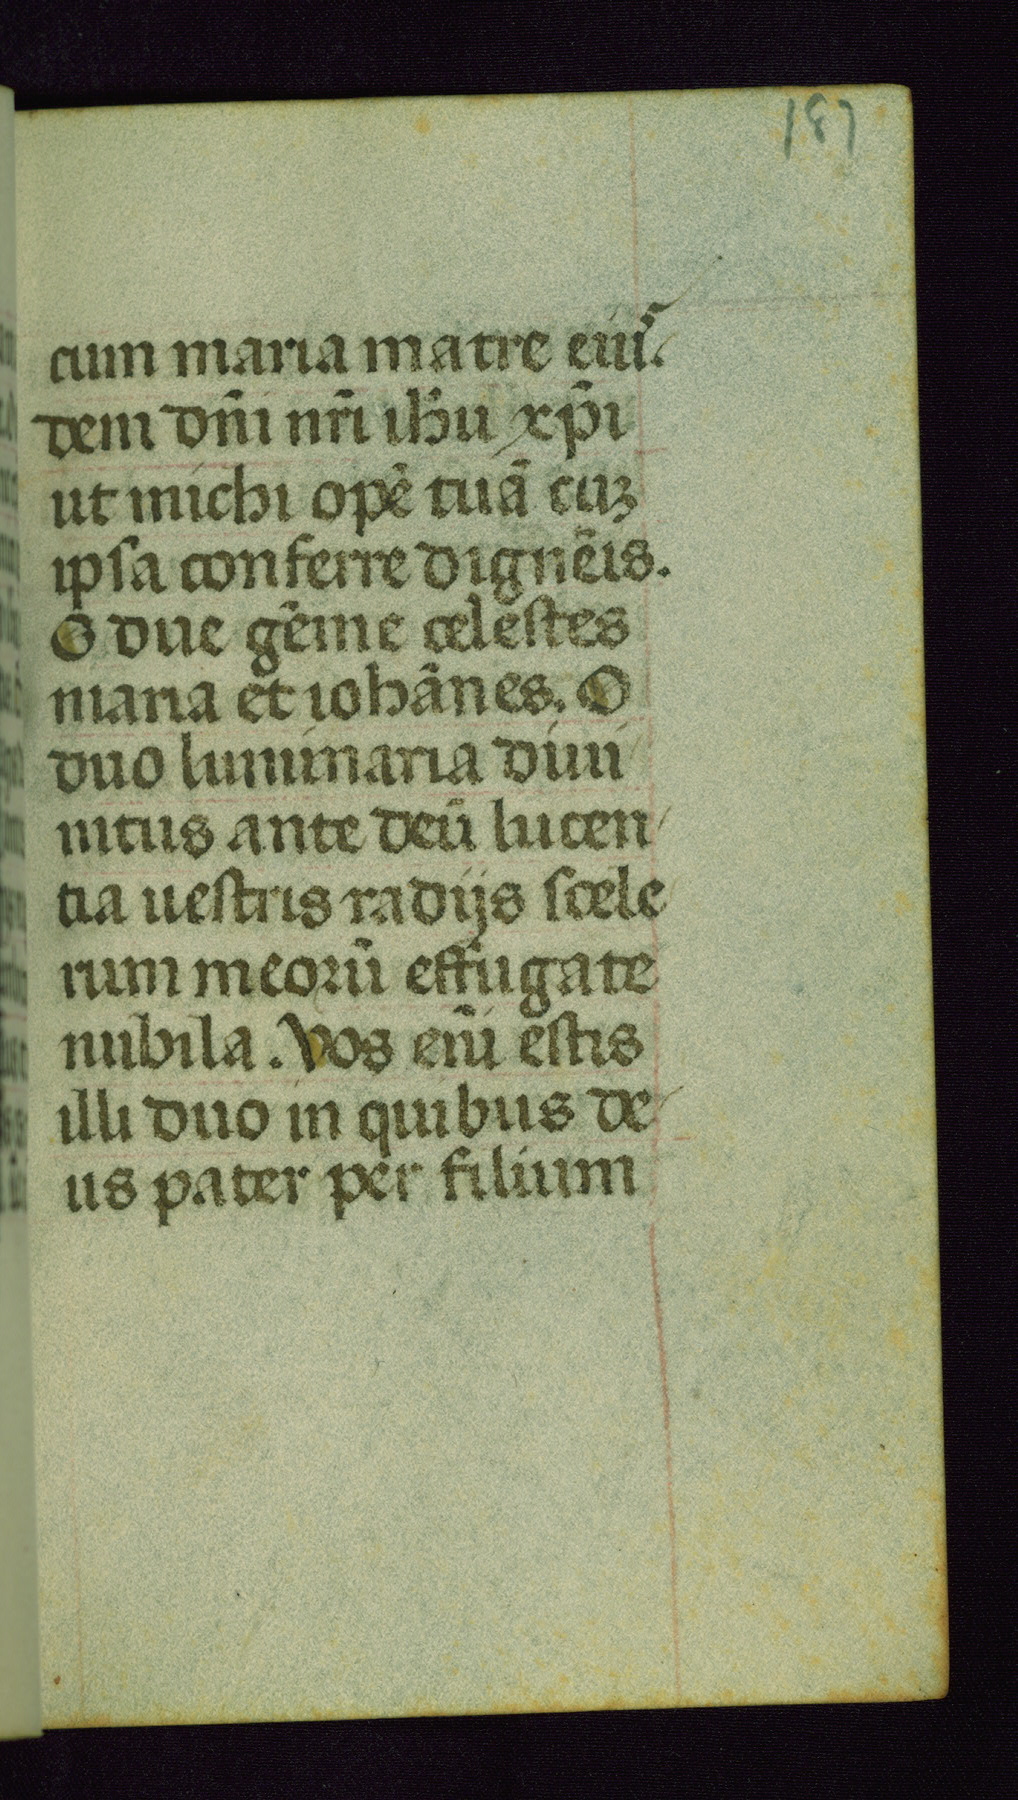 cum maria matre eiuſ
dem dñi nr̃i ih̃u xp̃i
ut michi opē tuā cuꝫ
ipſa conferre dignēis.
O due gēme celeſtes
maria et iohānes. O
duo luminaria diui
nitus ante deū lucen
tia ueſtris radijs ſcele
rum meorū effugate
nubila. Vos eiñi eſtis
illi duo in quibus de
us pater per filium